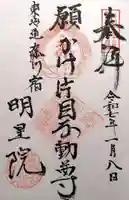 奉拝
令和七年一月八日
願かけ片目不動尊
東海道奈川宿
明星院